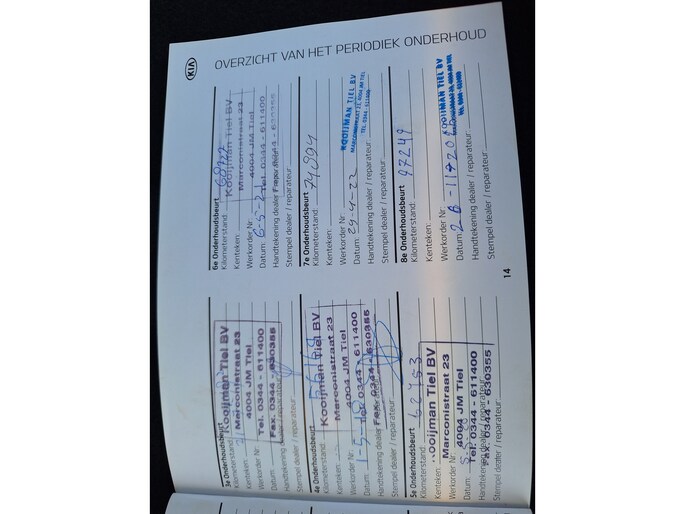 KIA
OVERZICHT VAN HET PERIODIEK ONDERHOUD
3e Onderhoudsbeurt
Kilometerstand:
Kenteken:
Werkorder Nr:
Datum:
Handtekening dealer / reparateur:
Stempel dealer / reparateur:
Kooijman Tiel BV
Marconistraat 23
4004 JM Tiel
Tel. 0344 - 611400
Fax. 0344 - 630355
4e Onderhoudsbeurt
Kilometerstand:
Kenteken:
Werkorder Nr:
Datum:
Handtekening dealer / reparateur:
Stempel dealer / reparateur:
Kooijman Tiel BV
Marconistraat 23
4004 JM Tiel
Tel. 0344 - 611400
Fax. 0344 - 630355
5e Onderhoudsbeurt
Kilometerstand: 62753
Kenteken:
Werkorder Nr:
Datum:
Handtekening dealer / reparateur:
Stempel dealer / reparateur:
Kooijman Tiel BV
Marconistraat 23
4004 JM Tiel
Tel. 0344 - 611400
Fax. 0344 - 630355
6e Onderhoudsbeurt
Kilometerstand:
Kenteken:
Werkorder Nr:
Datum: 6-5-21
Handtekening dealer / reparateur:
Stempel dealer / reparateur:
Kooijman Tiel BV
Marconistraat 23
4004 JM Tiel
Tel. 0344 - 611400
Fax. 0344 - 630355
7e Onderhoudsbeurt
Kilometerstand: 74894
Kenteken:
Werkorder Nr:
Datum: 29-4-22
Handtekening dealer / reparateur:
Stempel dealer / reparateur:
KOOIJMAN TIEL BV
MARCONISTRAAT 23, 4004 JM TIEL
TEL. 0344 - 611400
8e Onderhoudsbeurt
Kilometerstand: 97249
Kenteken:
Werkorder Nr:
Datum:
Handtekening dealer / reparateur:
Stempel dealer / reparateur:
KOOIJMAN TIEL BV
14